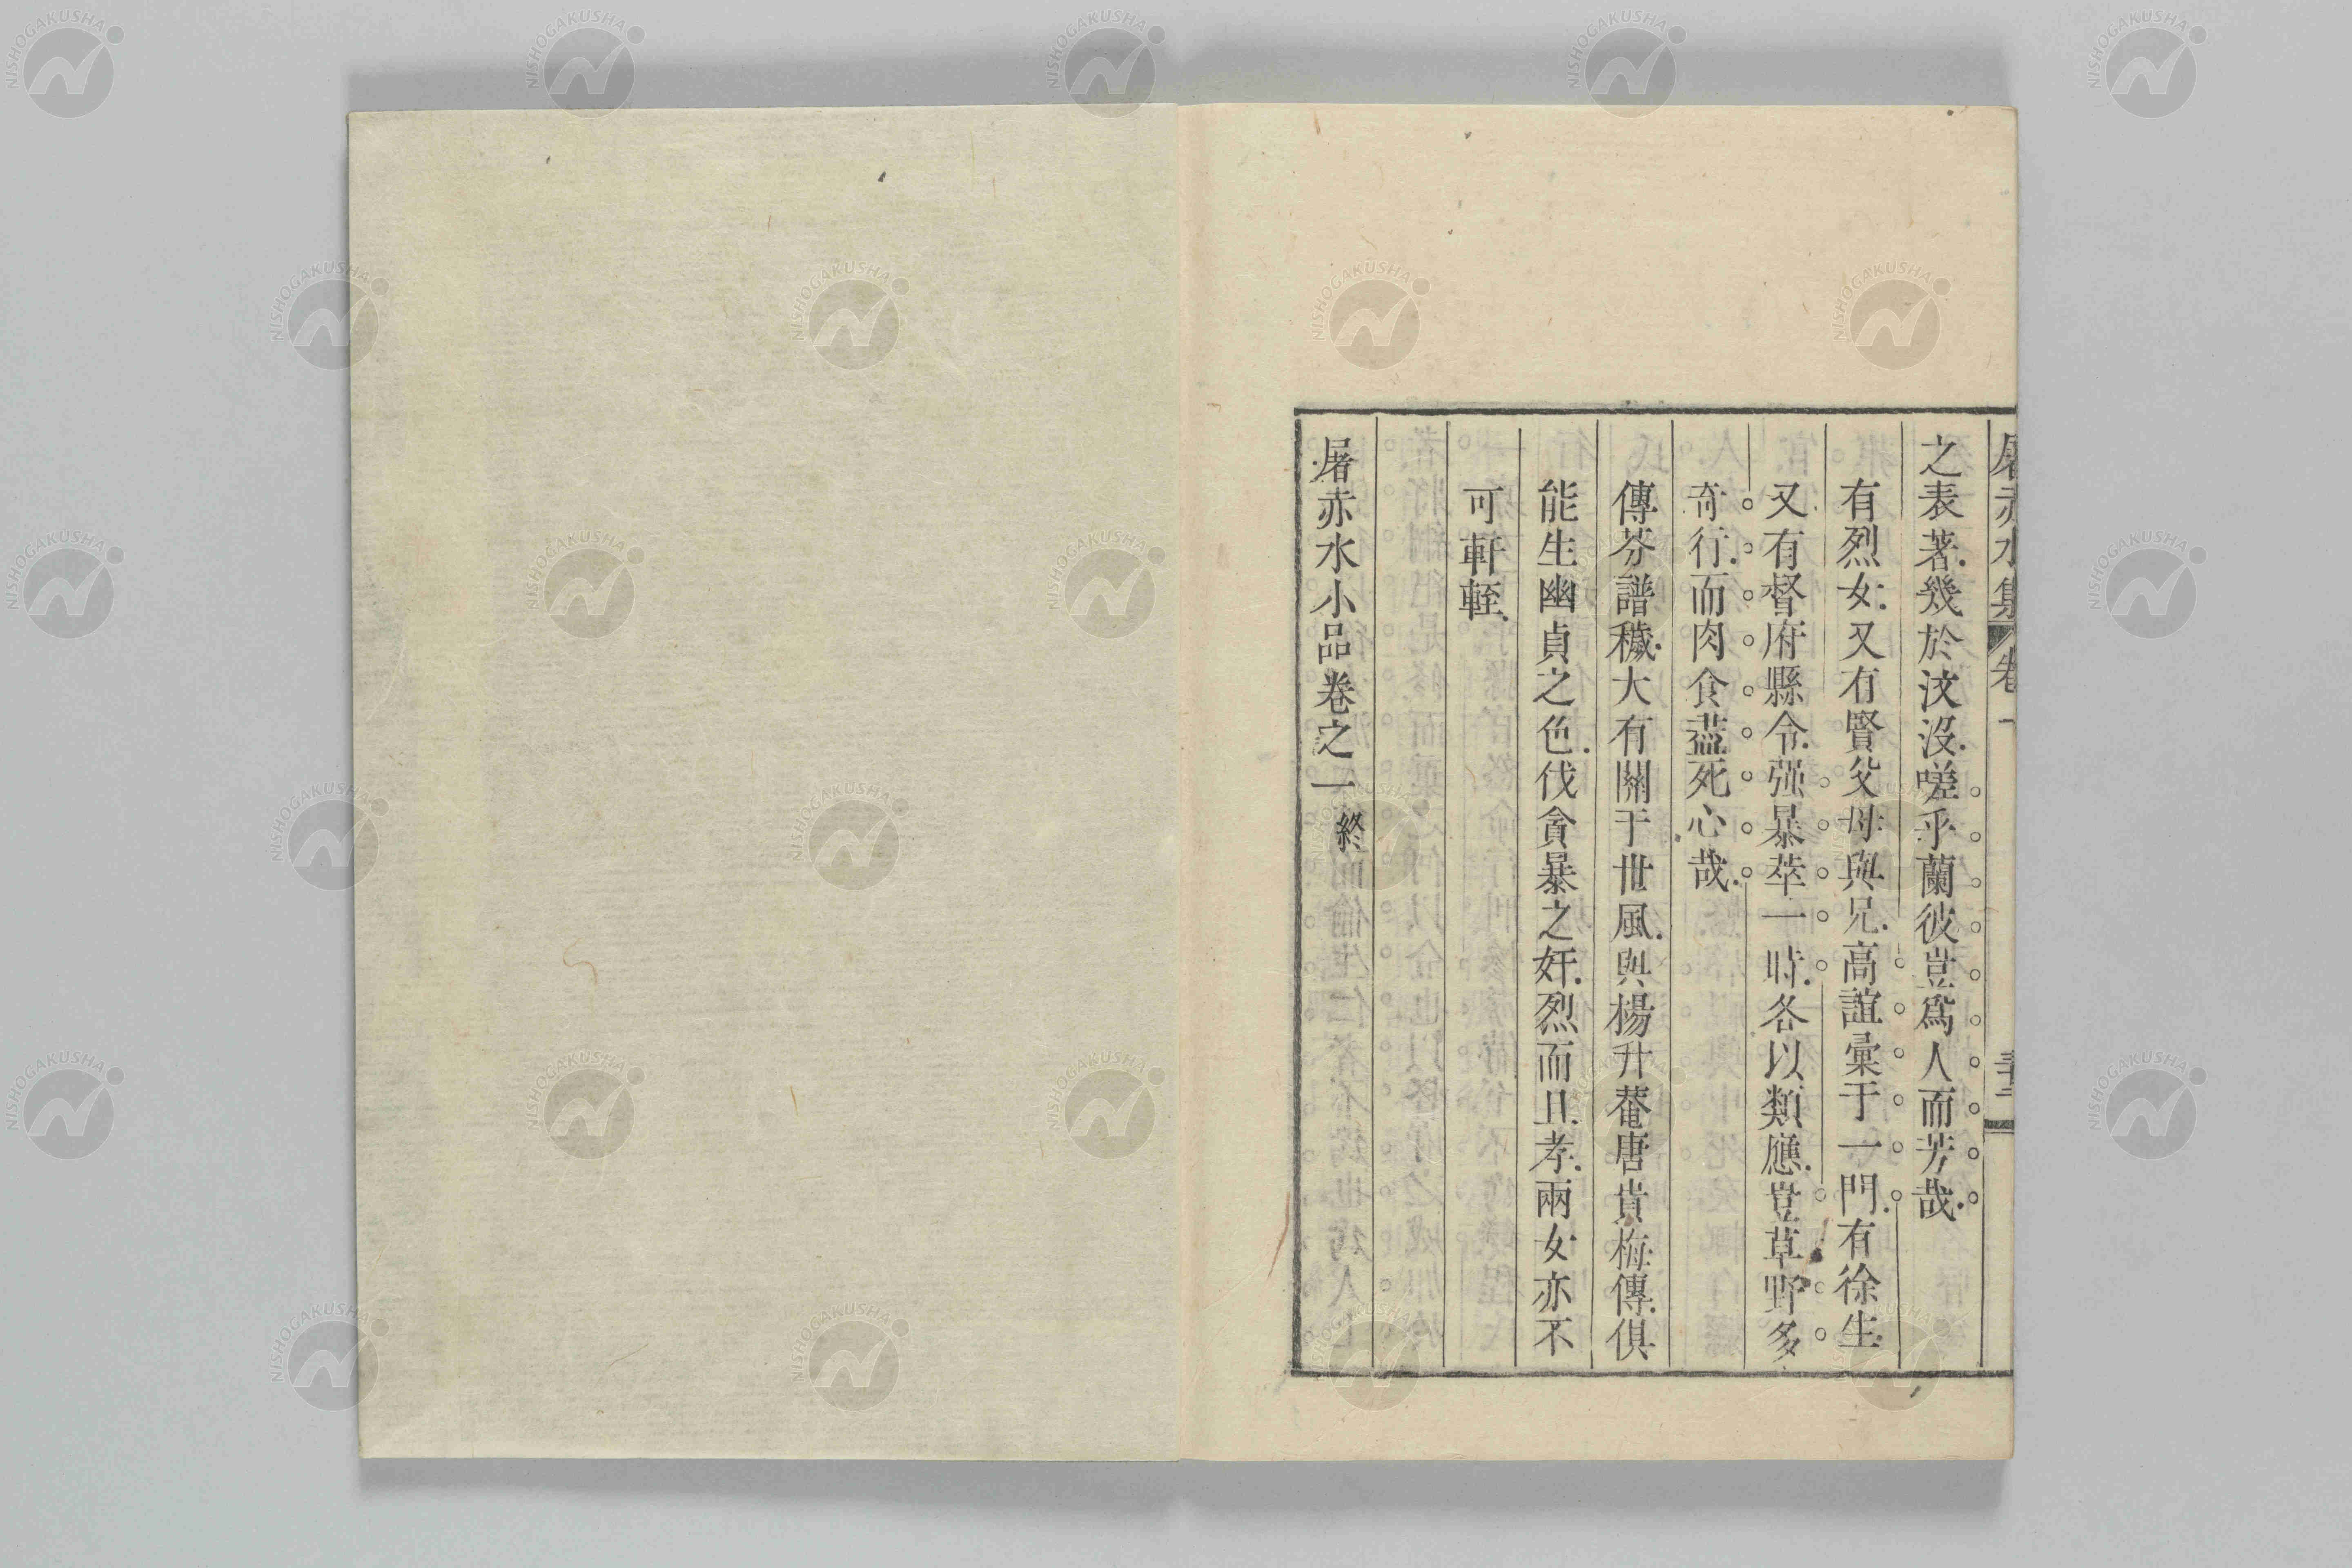 屠赤水集 卷一 三十二
之表著幾於汶沒嗟乎蘭彼豈爲人而芳哉
有烈女又有賢父母與兄高誼彙于一門有徐生
又有督府縣令强暴萃一時各以類應豈草野多
奇行而肉食盡死心哉
傳芬譜穢大有關于世風與楊升菴唐貴梅傳俱
能生幽貞之色伐貪暴之奸烈而且孝兩女亦不
可軒輊
屠赤水小品卷之一終
NISHOGAKUSHA